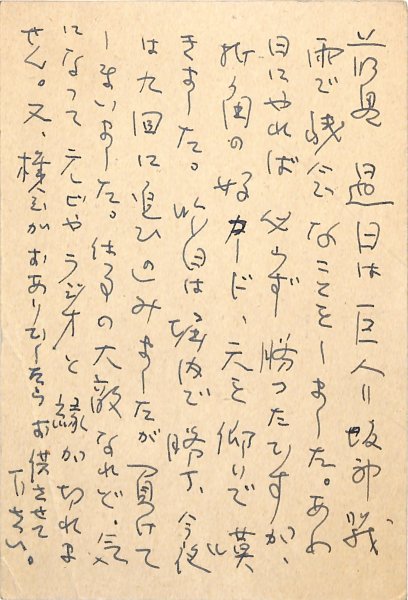 前略 過日は巨人‖阪神戦
雨で残念なことをしました。あの
日にやれば必らず勝つたですが、
折角の好カード、天を仰いで嘆
きました。昨日は堀内で勝ち、今夜
は九回に追ひこみましたが 負けて
しまいました。仕事の大敵なれど、気
になつてテレビやラジオと縁が切れま
せん。又、機会がおありでしたらお供させて
下さい。